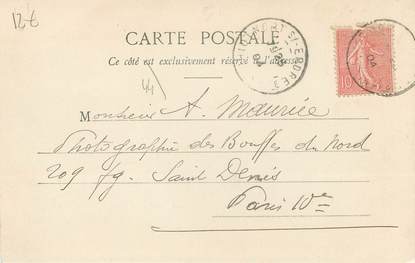 12 €
CARTE POSTALE
Ce côté est exclusivement réservé à l'adresse
Monsieur A. Maurice
Photographie des Bouffes du Nord
209 fg. Saint Denis
Paris Xe
10
04